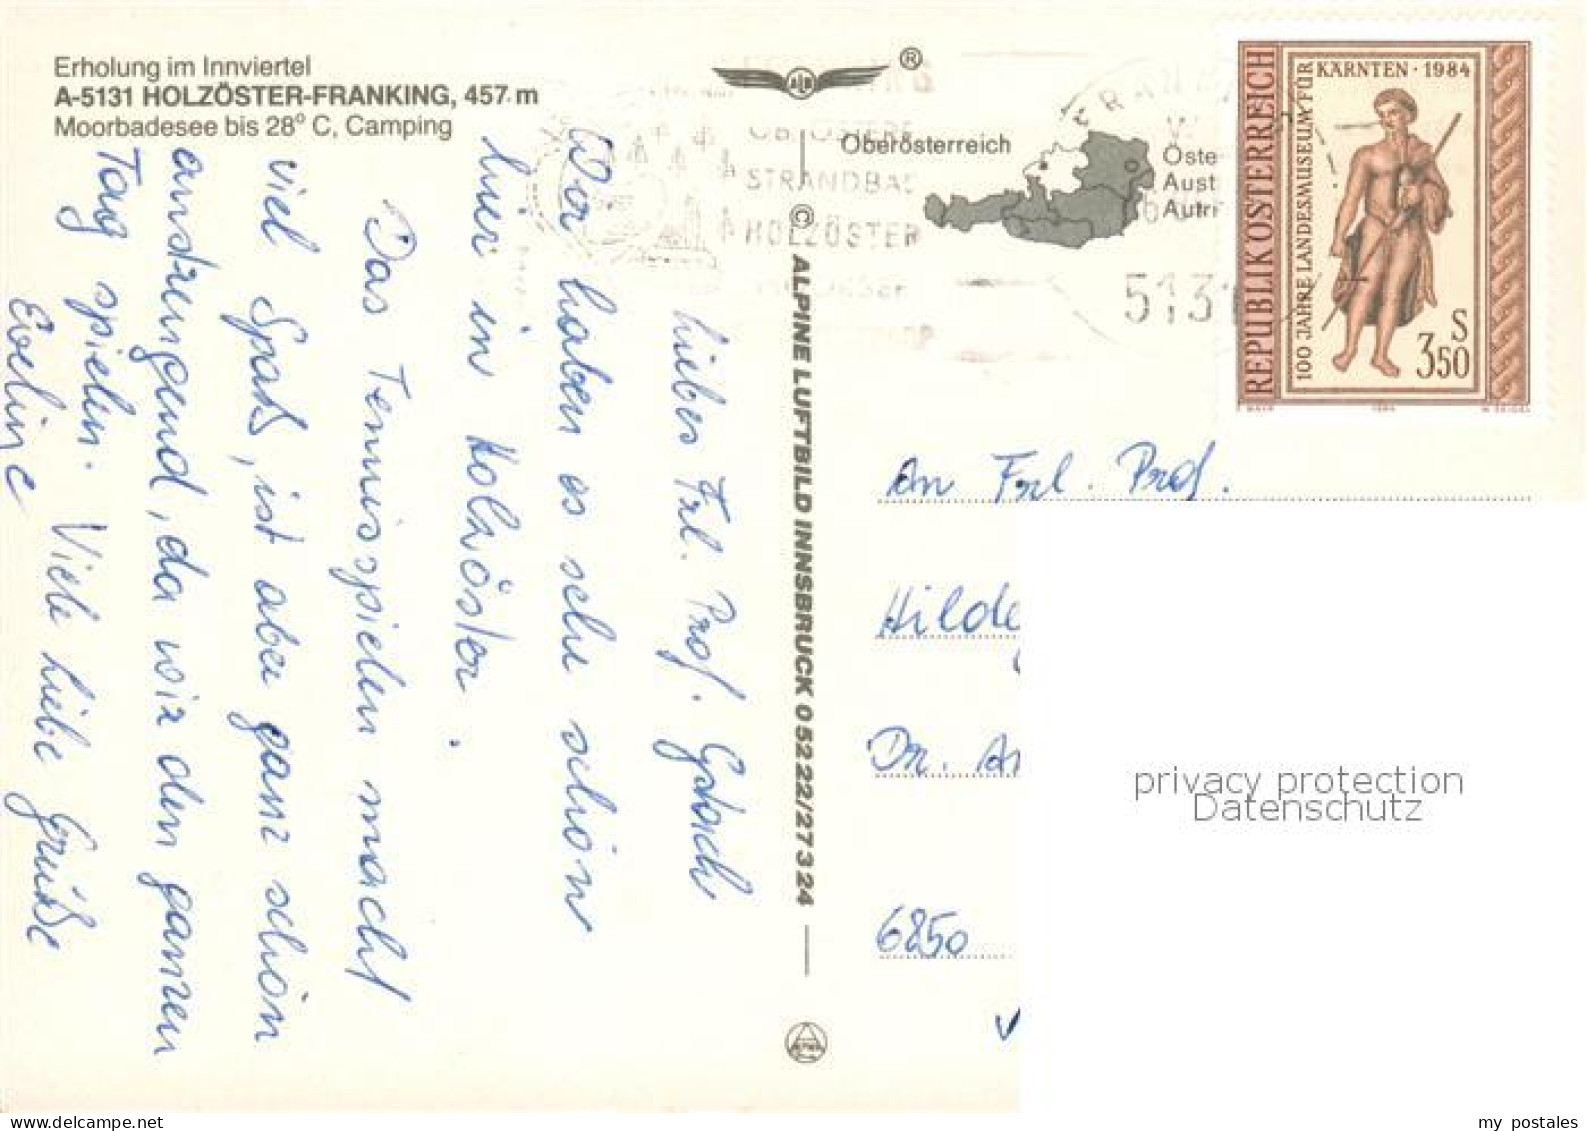 Erholung im Innviertel
A-5131 HOLZÖSTER-FRANKING, 457 m
Moorbadesee bis 28° C, Camping
Liebes Frl. Prof.
Wir haben es sehr schön
hier in Holzöster.
Das Tennisspielen macht
viel Spaß, ist aber ganz schön
anstrengend, da wir den ganzen
Tag spielen. Viele liebe Grüße
Eveline
®
ALR
© ALPINE LUFTBILD INNSBRUCK 0 52 22/27 3 24
Oberösterreich
Öste
Aust
Autri
STRANDBAD
HOLZÖSTER
5131
REPUBLIK ÖSTERREICH
100 JAHRE LANDESMUSEUM FÜR
KÄRNTEN · 1984
S
3.50
1984
An Frl. Prof.
Hilde
Dr. An
6850
privacy protection
Datenschutz
my postales